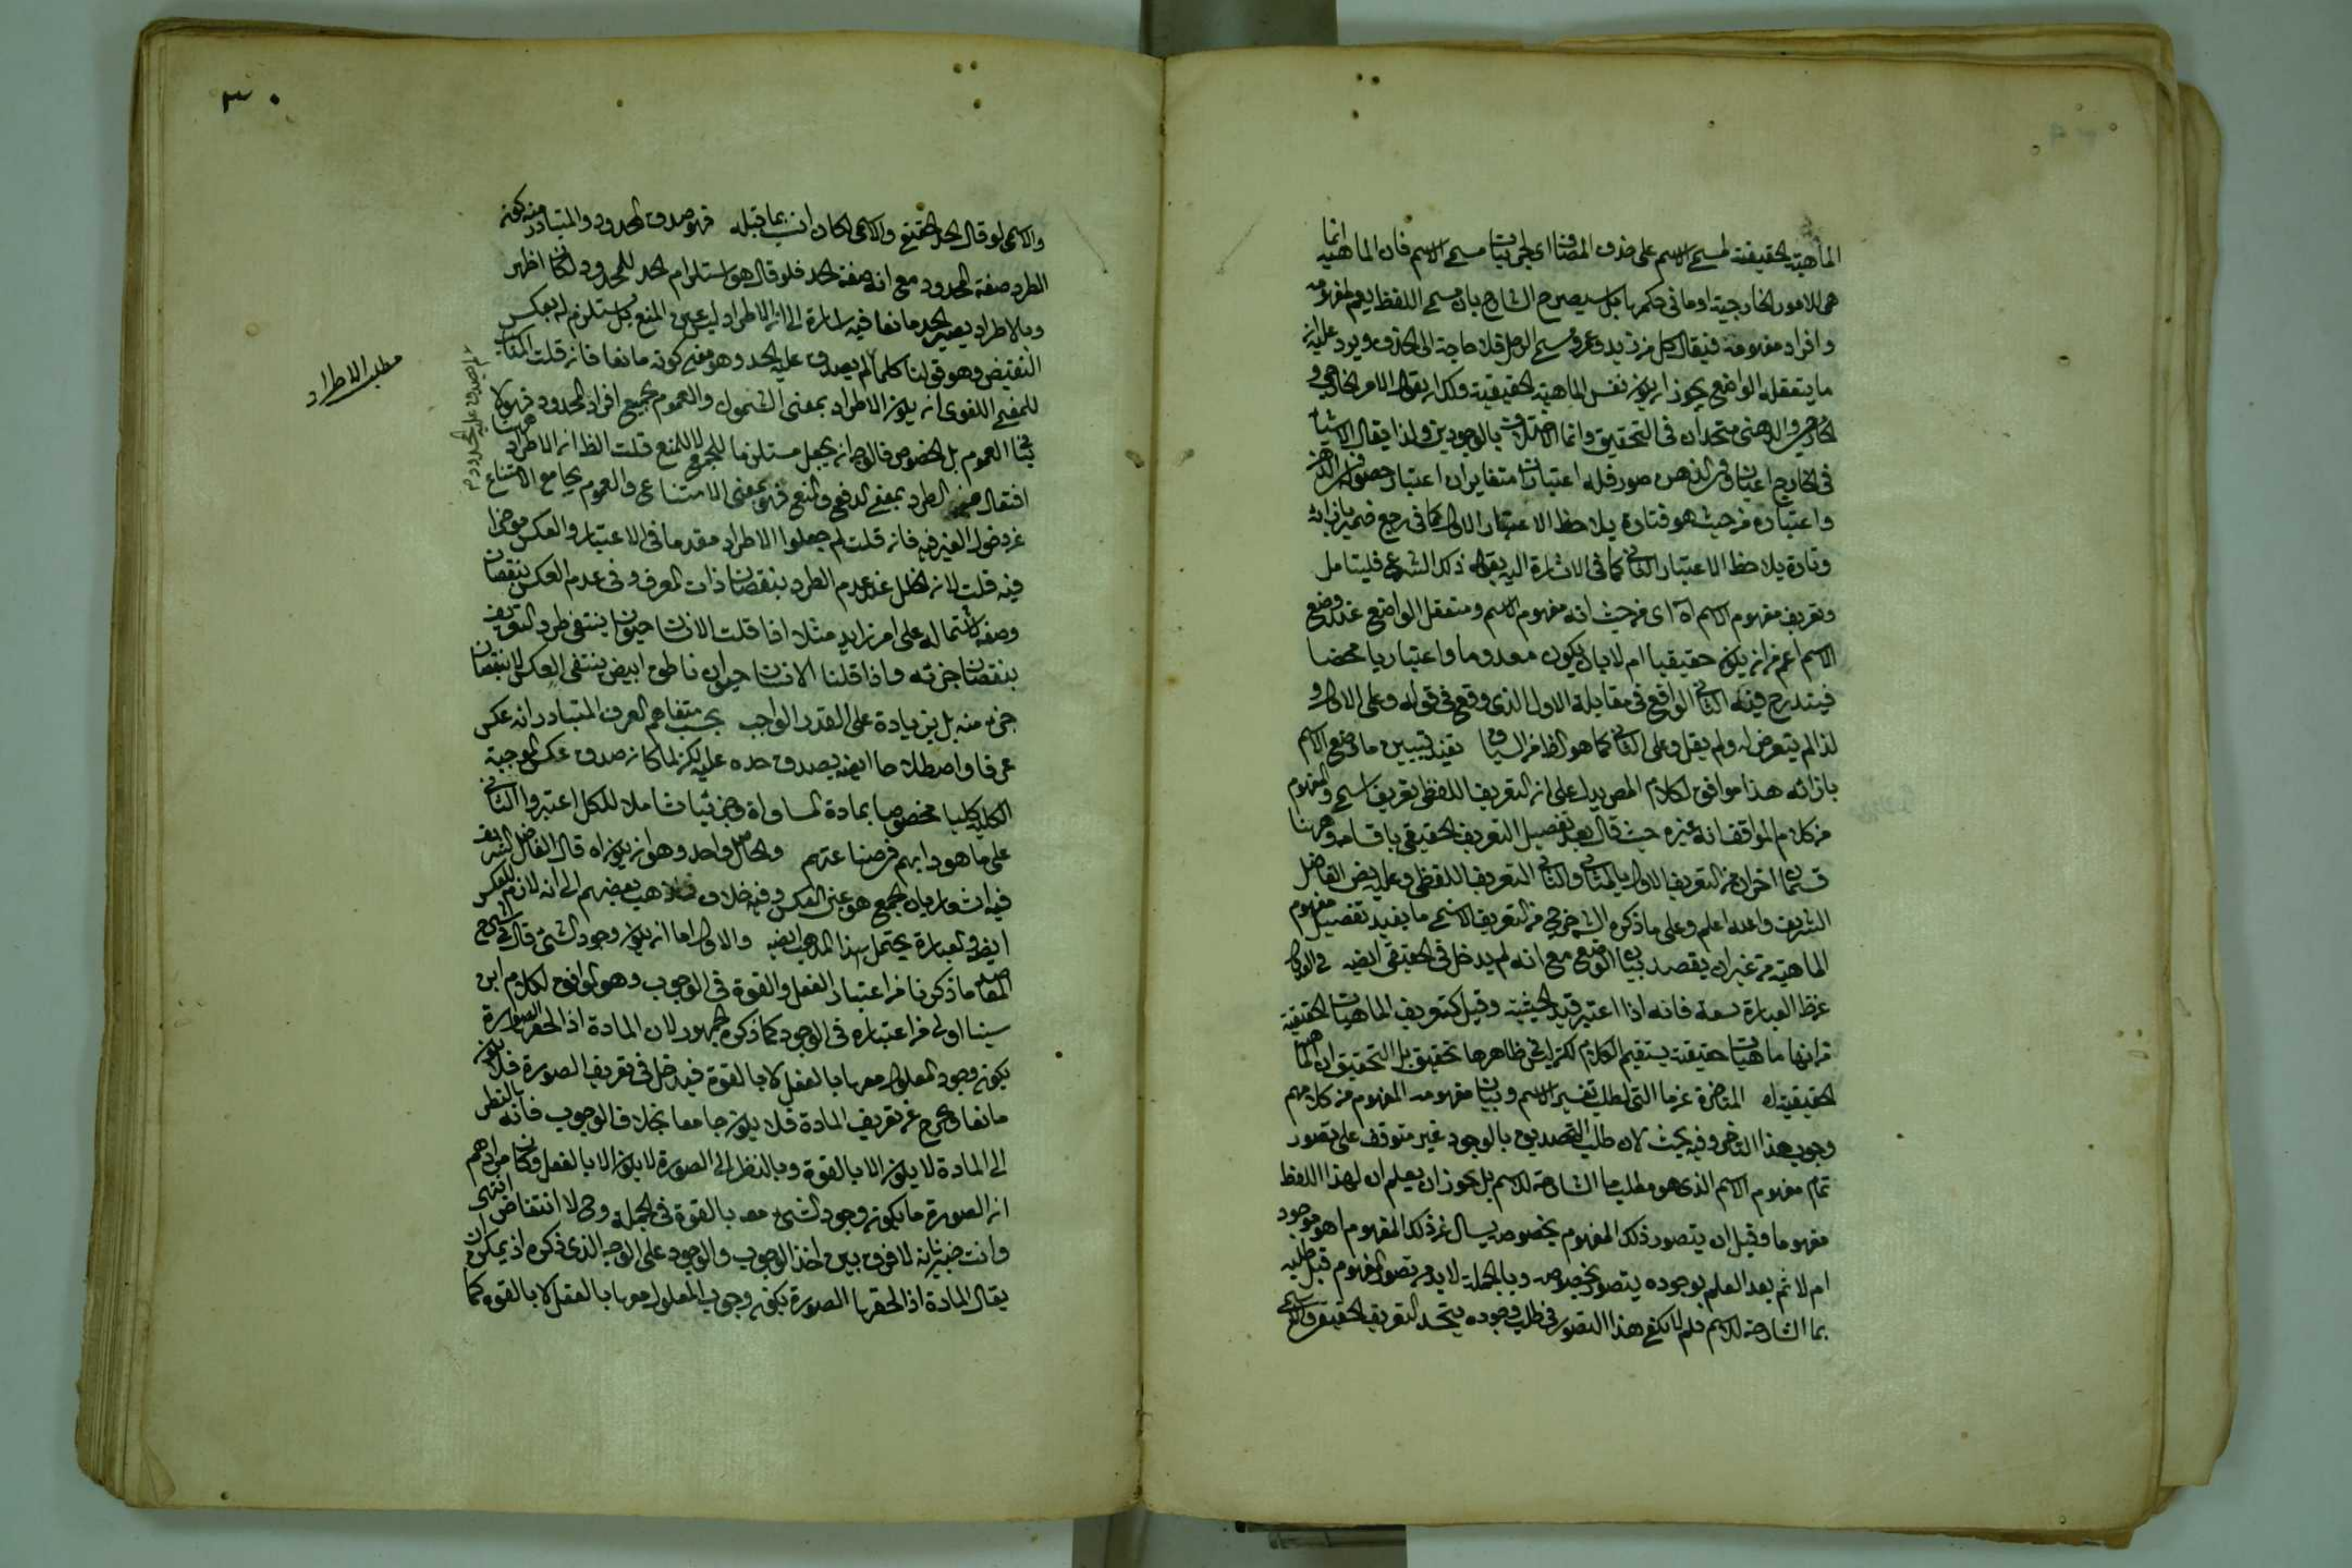 الماهية الحقيقية لمسمى الاسم على حذف المضاف اى لجزئيات مسمى الاسم فان الماهية انما
هى للامور الخارجية او ما فى حكمها بل سيصرح الشارح بان مسمى اللفظ يعم مفهومه
وافراد مفهومه فيقال لكل من زيد وعمرو مسمى الرجل فلا حاجة الى الحذف ويرد عليه ان
ما يتعقله الواضع يجوز ان يكون نفس الماهية الحقيقية وكذا يقول الامر الخارجى و
الخارجى والذهنى متحدان فى التحقيق وانما الاختلاف بالوجودين ولذا يقال الاشياء
فى الخارج اعيان وفى الذهن صور فله اعتباران متغايران اعتبار حصوله فى الذهن
واعتباره من حيث هو فتارة يلاحظ الاعتبار الاول كما فى رجع ضمير بازائه
وتارة يلاحظ الاعتبار الثانى كما فى الاشارة اليه بقوله ذلك الشئ فليتامل
وتعريف مفهوم الاسم اه اى من حيث انه مفهوم الاسم ومتعقل الواضع عند وضع
الاسم اعم من ان يكون حقيقيا ام لا بان يكون معدوما واعتباريا محضا
فيندرج فيه الثانى الواقع فى مقابلة الاول الذى وقع فى قوله وعلى الاول و
لذا لم يتعرض له ولم يقل وعلى الثانى كما هو الظ من السياق يفيد تبيين ما وضع الاسم
بازائه هذا موافق لكلام المص يدل على ان التعريف اللفظى تعريف اسمى والمفهوم
من كلام المواقف انه غيره حيث قال بعد تفصيل التعريف الحقيقى باقسامه وههنا
قسمان اخران من التعريف الاول بالمثال والثانى التعريف اللفظى وعليه بعض الفاضل
الشريف والله اعلم وعلى ما ذكره الش خرج من التعريف الاسمى ما يفيد تفصيل مفهوم
الماهية من غير ان يقصد بيان الوضع مع انه لم يدخل فى الحقيقى ايضه فى الاول
عن ظ العبارة سعة فانه اذا اعتبر قيد الحيثية وقيل كتعريف الماهيات الحقيقية
من انها ماهيات حقيقية يستقيم الكلام لكن لا يخفى ظاهرها تحقيق بل التحقيق ان الماهية
الحقيقية المتاخرة عن ما التى لطلب تفسير الاسم وبيان مفهومه المفهوم من كلامهم
وجوب هذا التاخر وفيه بحث لان طلب التصديق بالوجود غير متوقف على تصور
تمام مفهوم الاسم الذى هو مطلب ما الشارحة للاسم بل يجوز ان يعلم ان لهذا اللفظ
مفهوما وقبل ان يتصور ذلك المفهوم بخصوصه يسال عن ذلك المفهوم اهو موجود
ام لا ثم بعد العلم بوجوده يتصور بخصوصه وبالجملة لا بد من تصور المفهوم قبل طلبه
بما الشارحة للاسم فلم لا يكفى هذا التصور فى طلب وجوده يتحد التعريف الحقيقى والاسمى
٣٠
والاسمى لو قال الحد الحقيقى والاسمى لكان انسب بما قبله فهو صدق المحدود والمتبادر منه كونه
الطرد صفة المحدود مع انه صفة الحد فلو قال هو استلزام الحد للمحدود لكان اظهر
وبالاطراد يصير الحد مانعا فيه اشارة الى ان الاطراد ليس عين المنع بل يستلزم له بعكس
النقيض وهو قولنا كلما لم يصدق عليه الحد وهو معنى كونه مانعا فان قلت المناسب
للمعنى اللغوى ان يكون الاطراد بمعنى الشمول والعموم لجميع افراد المحدود فهو لا
ينافى العموم بل الخصوص فالوجه ان يجعل مستلزما للجمع لا للمنع قلت الظ ان الاطراد ههنا
افتعال من الطرد بمعنى الدفع والمنع فهو بمعنى الامتناع والعموم يجامع الامتناع
عن دخول الغير فيه فان قلت لم جعلوا الاطراد مقدما فى الاعتبار والعكس مؤخرا
فيه قلت لان الخلل عند عدم الطرد بنقصان ذات المعرف وفى عدم العكس بنقصان
وصفه لاشتماله على امر زايد مثلا اذا قلت الانسان حيوان ينتفى طرد التعريف
بنقصان جزئه واذا قلنا الانسان حيوان ناطق ابيض ينتفى العكس لا بنقصان
جزء منه بل بزيادة على القدر الواجب بحسب متفاهم العرف المتبادر انه عكس
عرفا واصطلاحا ايضه يصدق حده عليه لكن لما كان صدق عكس الموجبة
الكلية كليا مخصوصا بمادة المساواة وجزئيا شاملا للكل اعتبروا الثانى
على ما هو دابهم من صناعتهم والحاصل واحد وهو ان يكون اه قال الفاضل الشريف
فيه اشعار بان الجمع هو عين العكس وفيه خلاف فذهب بعضهم الى انه لازم للعكس
ايضه والعبارة يحتمل هذا المذهب ايضه والاول اما ان يكون وجود الشئ قال فى شرح
المقاصد ما ذكرنا من اعتبار الفعل والقوة فى الوجوب وهو الموافق لكلام ابن
سينا اولى من اعتباره فى الوجود كما ذكره الجمهور لان المادة اذا لحقها الصورة
يكون وجود المعلول معها بالفعل لا بالقوة فيدخل فى تعريف الصورة فلا يكون
مانعا ويخرج عن تعريف المادة فلا يكون جامعا بخلاف الوجوب فانه بالنظر
الى المادة لا يكون الا بالقوة وبالنظر الى الصورة لا يكون الا بالفعل وكان مرادهم
ان الصورة ما يكون وجود الشئ معه بالقوة فى الجملة وح لا انتقاض انتهى
وانت خبير بانه لا فرق بين اخذ الوجوب والوجود على الوجه الذى ذكره اذ يمكن ان
يقال المادة اذا لحقها الصورة يكون وجوب المعلول معها بالفعل لا بالقوة كما
لم يصدق عليه المحدود م
مطلب الاطراد